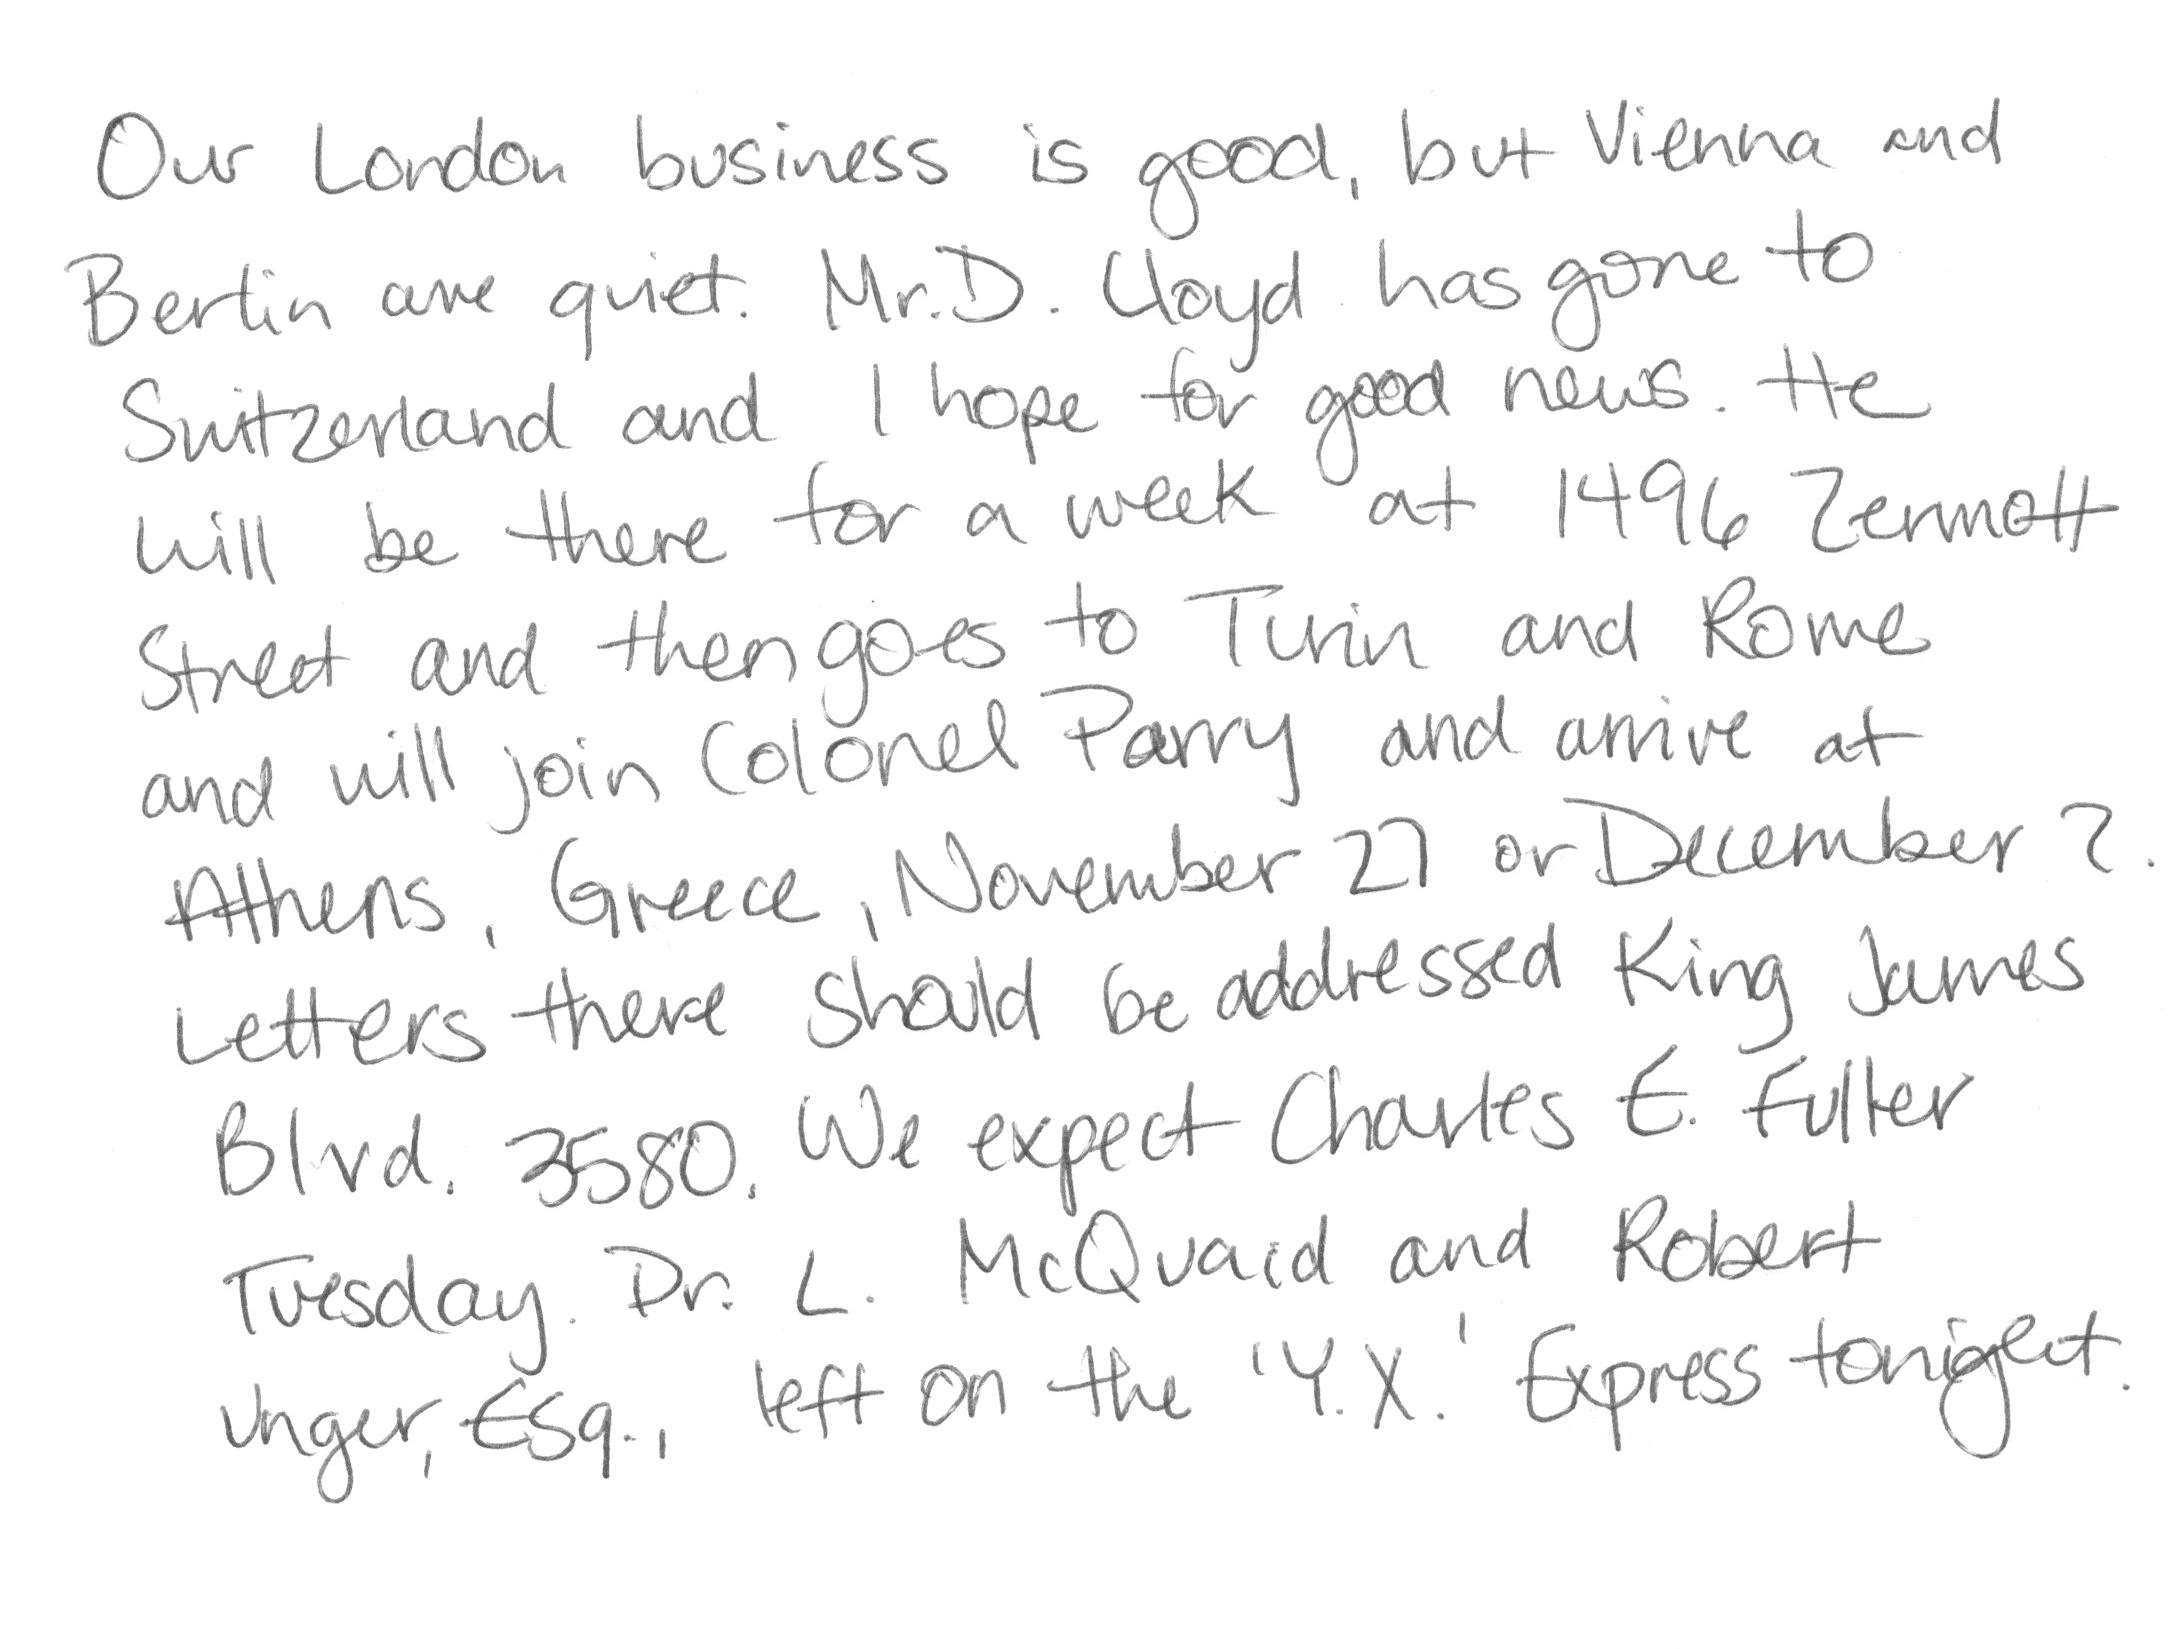 Our London business is good, but Vienna and
Berlin are quiet. Mr. D. Lloyd has gone to
Switzerland and I hope for good news. He
will be there for a week at 1496 Zermott
Street and then goes to Turin and Rome
and will join Colonel Parry and arrive at
Athens, Greece, November 27 or December 2.
Letters there should be addressed King James
Blvd. 3580. We expect Charles E. Fuller
Tuesday. Dr. L. McQuaid and Robert
Unger, Esq., left on the 'Y.X.' Express tonight.